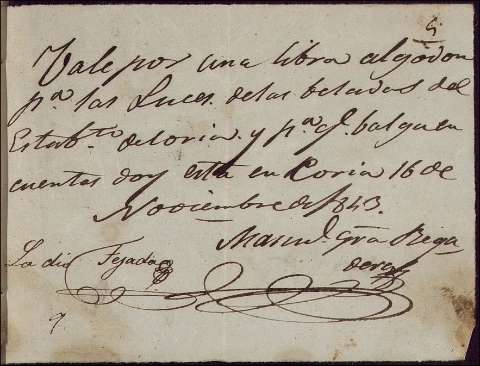 5
Vale por una libra algodon
pª las Luces. de las beladas del
Estabtº. de Coria. y pª q. balga en
cuentas doy esta en Coria 16 de
Noviembre de 1843.
Manuel Gra Rega
dera
La dio Tejada